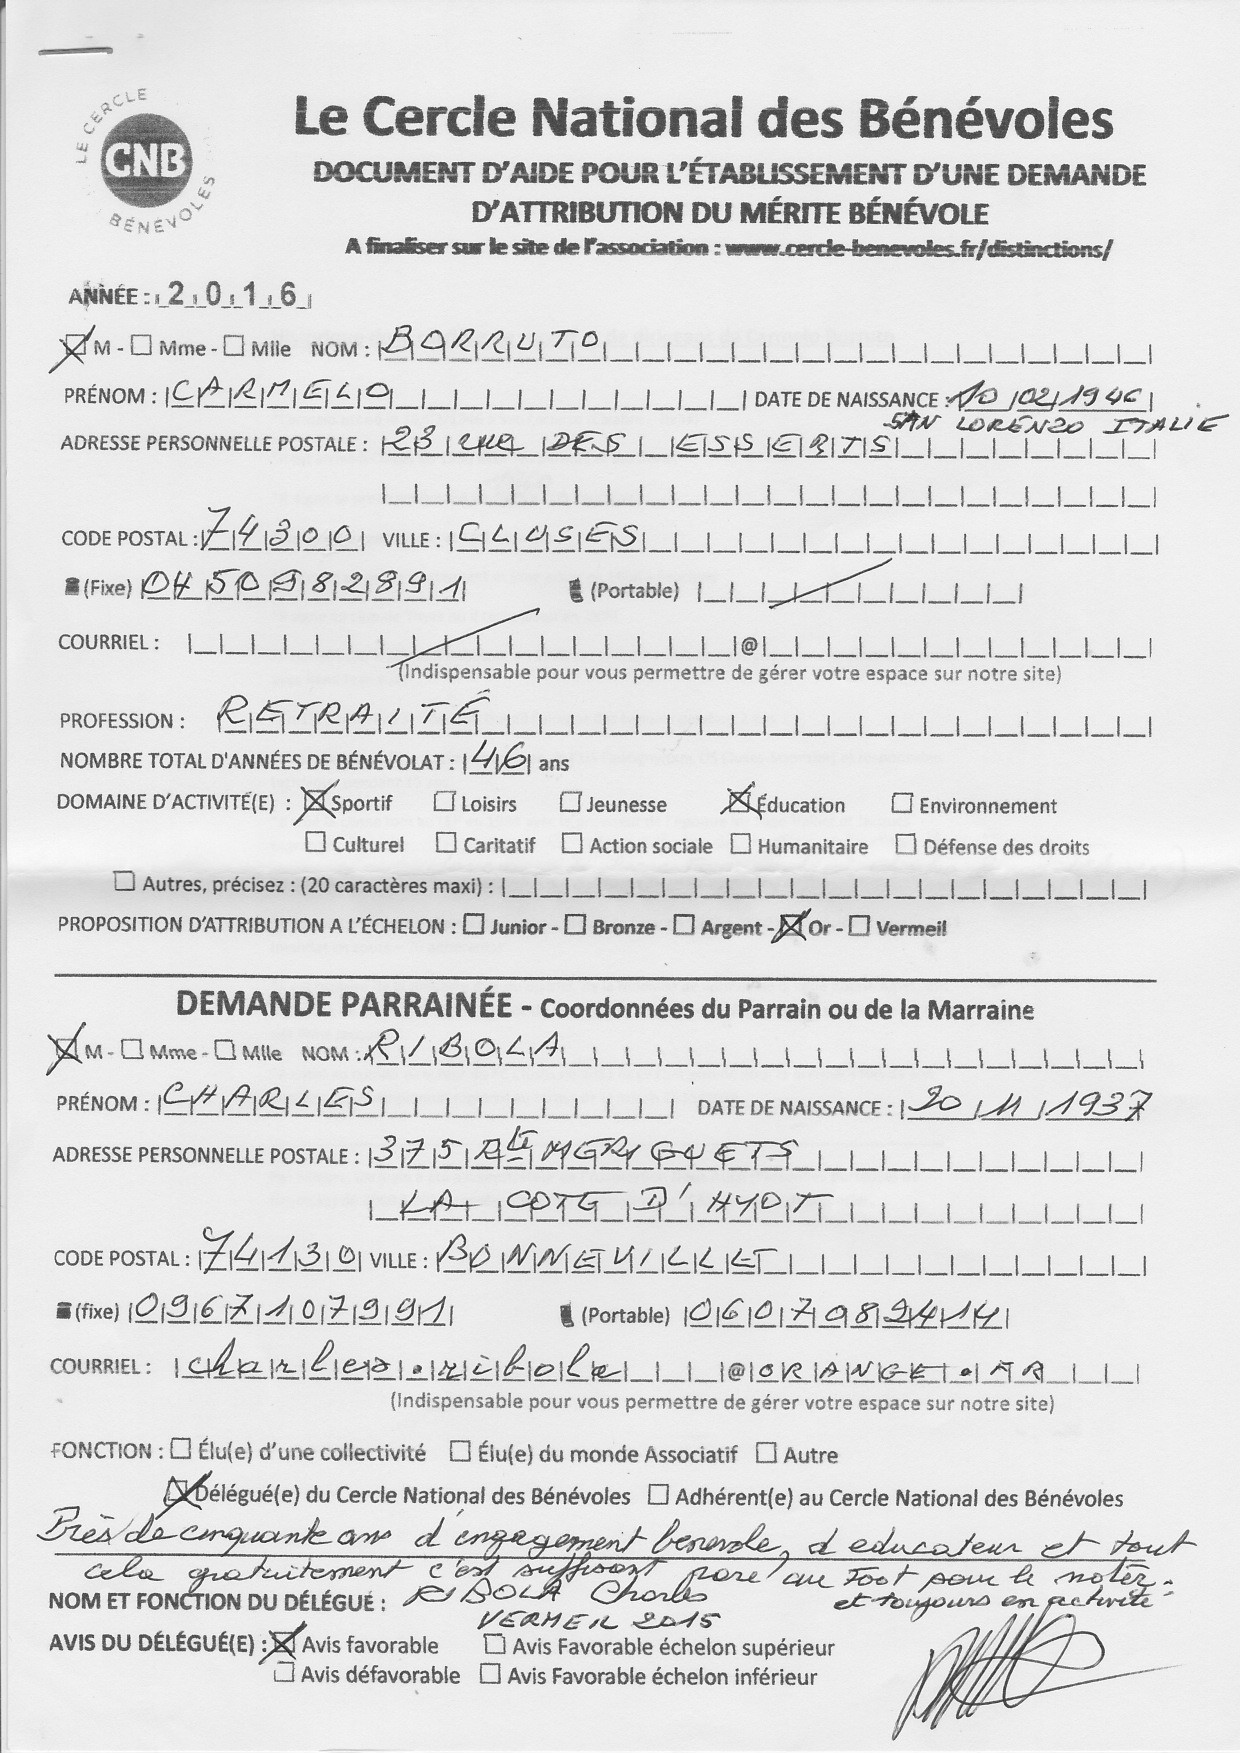 LE CERCLE
CNB
BÉNÉVOLES
Le Cercle National des Bénévoles
DOCUMENT D'AIDE POUR L'ÉTABLISSEMENT D'UNE DEMANDE
D'ATTRIBUTION DU MÉRITE BÉNÉVOLE
A finaliser sur le site de l'association : www.cercle-benevoles.fr/distinctions/
ANNÉE : 2016
☒ M - ☐ Mme - ☐ Mlle NOM : BORRUTO
PRÉNOM : CARMELO DATE DE NAISSANCE : 10 02 1946
SAN LORENZO ITALIE
ADRESSE PERSONNELLE POSTALE : 23 rue DES ESSERTS
CODE POSTAL : 74300 VILLE : CLUSES
(Fixe) 0450982891 (Portable)
COURRIEL : @
(Indispensable pour vous permettre de gérer votre espace sur notre site)
PROFESSION : RETRAITÉ
NOMBRE TOTAL D'ANNÉES DE BÉNÉVOLAT : 46 ans
DOMAINE D'ACTIVITÉ(E) : ☒ Sportif ☐ Loisirs ☐ Jeunesse ☒ Éducation ☐ Environnement
☐ Culturel ☐ Caritatif ☐ Action sociale ☐ Humanitaire ☐ Défense des droits
☐ Autres, précisez : (20 caractères maxi) :
PROPOSITION D'ATTRIBUTION A L'ÉCHELON : ☐ Junior - ☐ Bronze - ☐ Argent - ☒ Or - ☐ Vermeil
DEMANDE PARRAINÉE - Coordonnées du Parrain ou de la Marraine
☒ M - ☐ Mme - ☐ Mlle NOM : RIBOLA
PRÉNOM : CHARLES DATE DE NAISSANCE : 20 11 1937
ADRESSE PERSONNELLE POSTALE : 375 Rte
LA COTE D'HYOT
CODE POSTAL : 74130 VILLE : BONNEVILLE
(fixe) 0967107991 (Portable) 0607982414
COURRIEL : charles.ribola @ORANGE.FR
(Indispensable pour vous permettre de gérer votre espace sur notre site)
FONCTION : ☐ Élu(e) d'une collectivité ☐ Élu(e) du monde Associatif ☐ Autre
☒ Délégué(e) du Cercle National des Bénévoles ☐ Adhérent(e) au Cercle National des Bénévoles
Près de cinquante ans d'engagement benevole, d educateur et tout
cela gratuitement c'est suffisant rare au Foot pour le noter.
et toujours en activité
NOM ET FONCTION DU DÉLÉGUÉ : RIBOLA Charles
VERMEIL 2015
AVIS DU DÉLÉGUÉ(E) : ☒ Avis favorable ☐ Avis Favorable échelon supérieur
☐ Avis défavorable ☐ Avis Favorable échelon inférieur